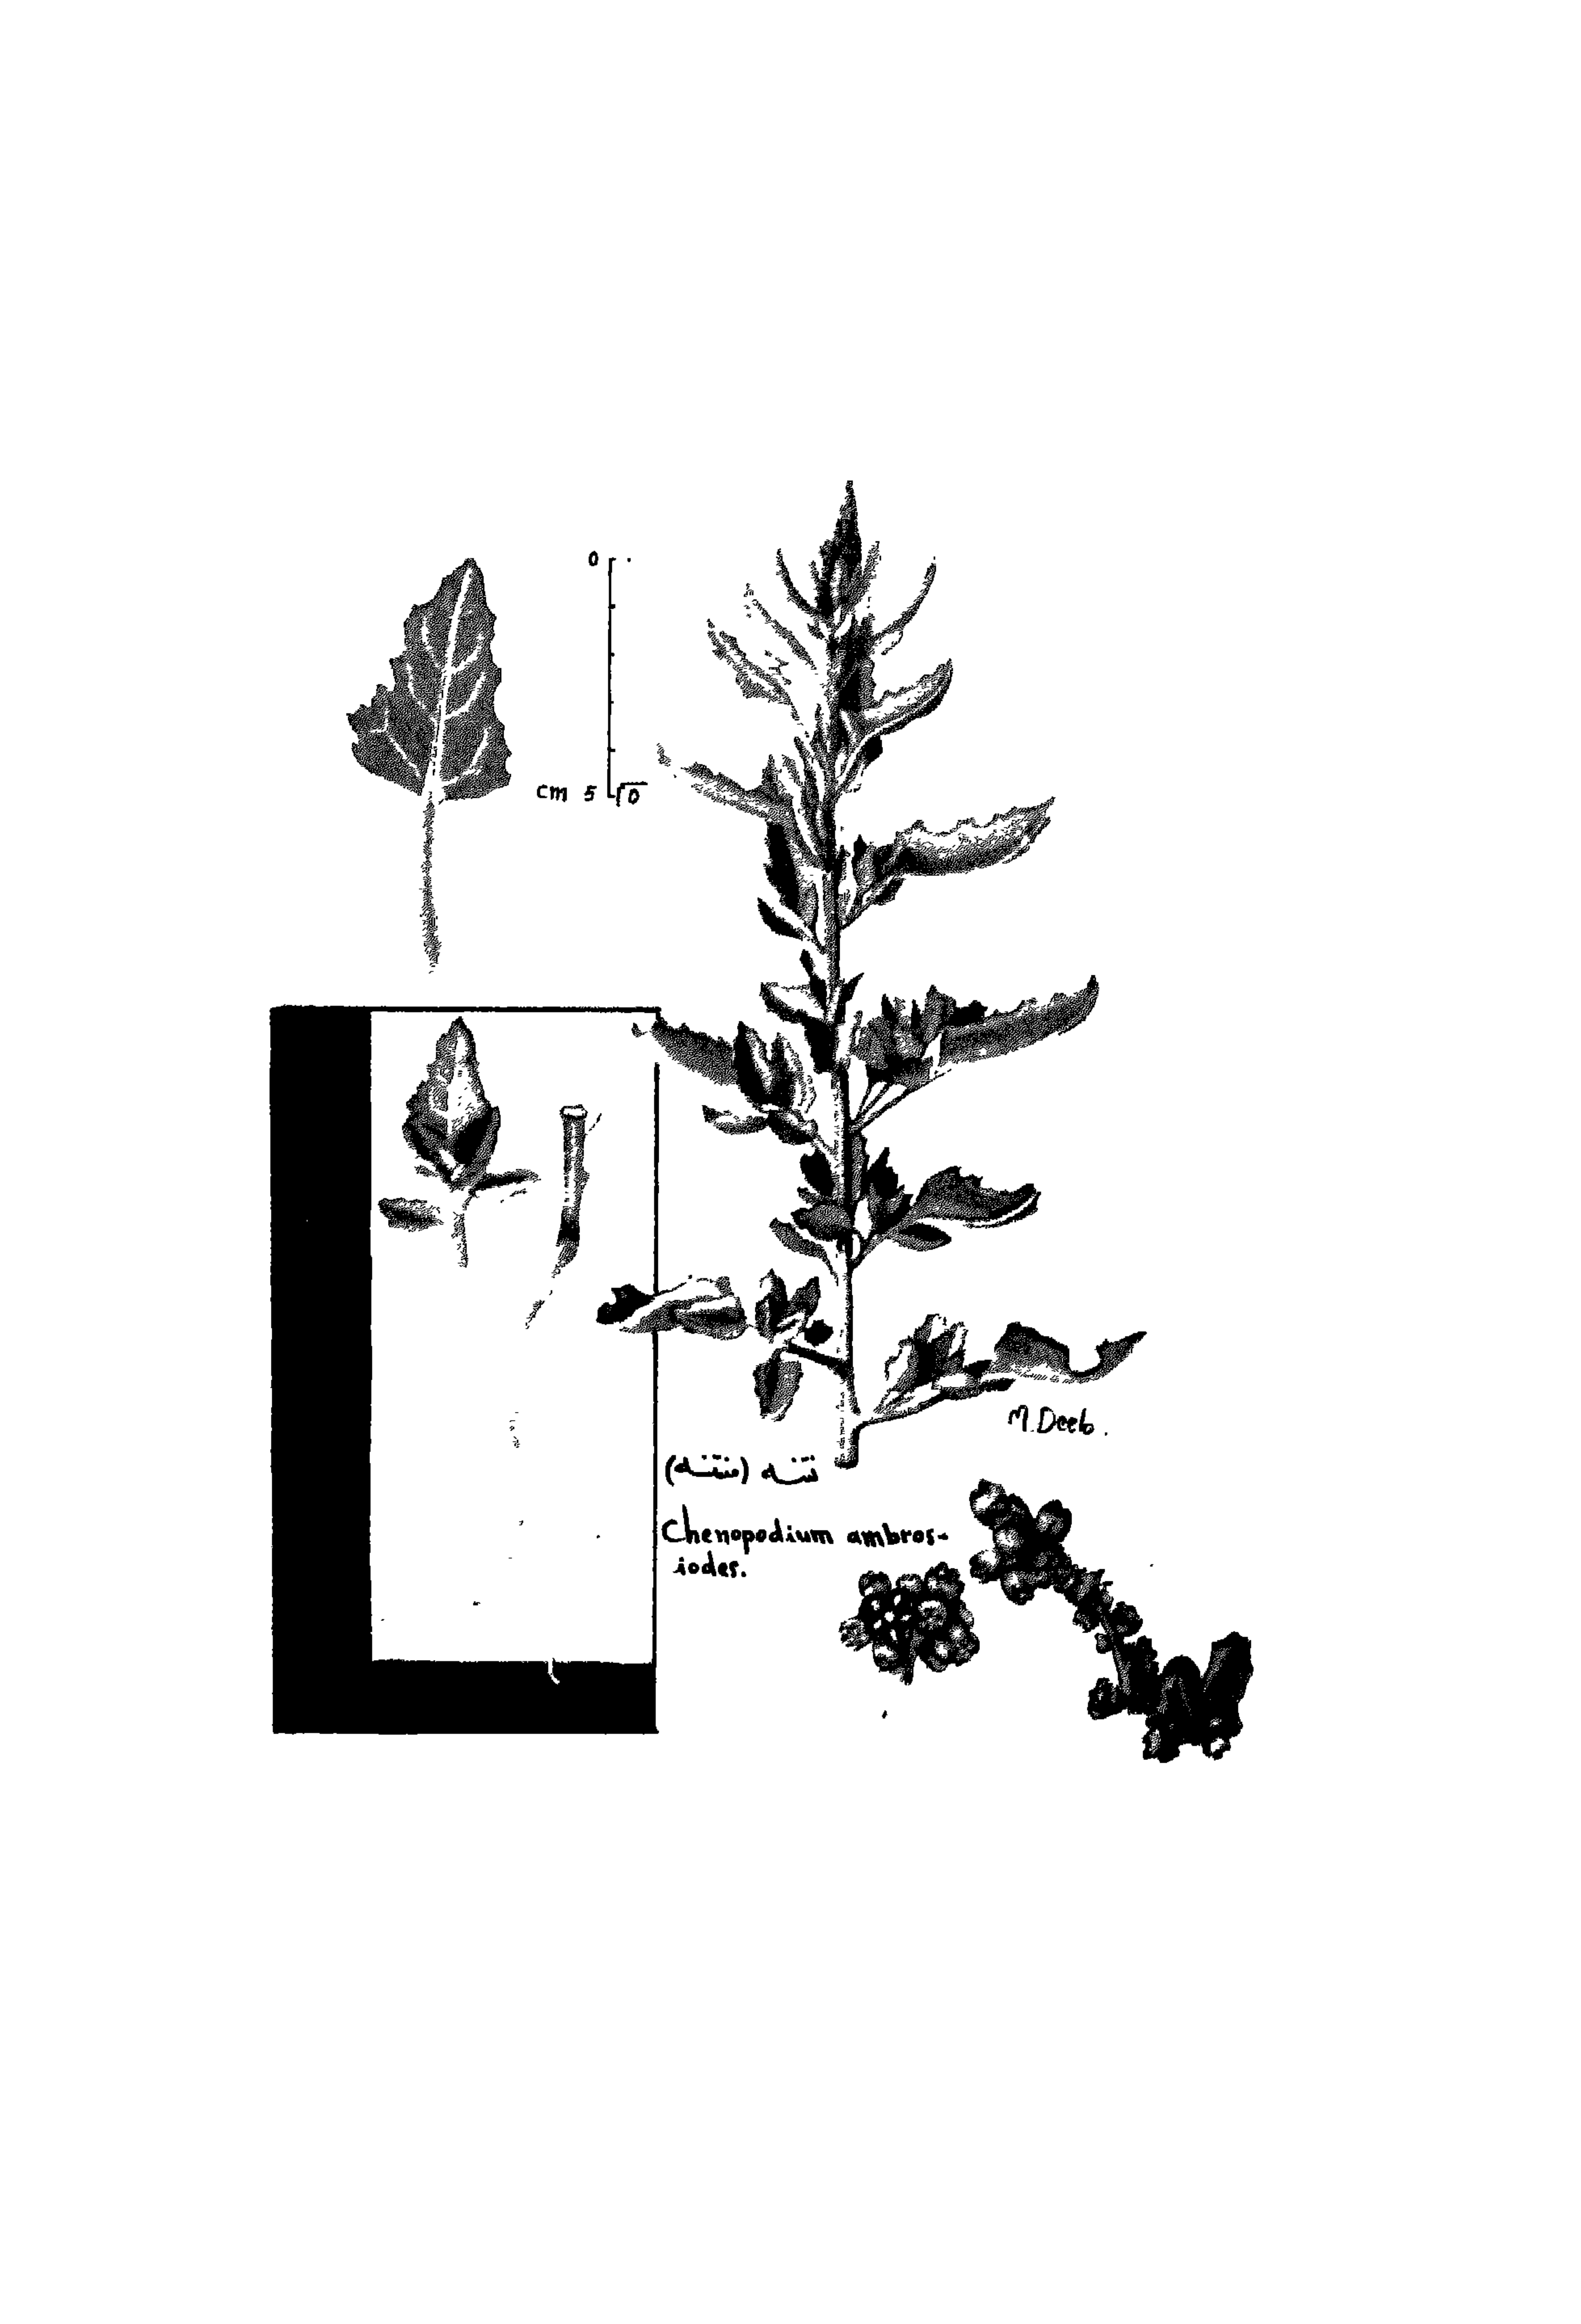 0
cm 5
M. Deeb.
نتنه (منتنه)
Chenopodium ambros-
iodes.